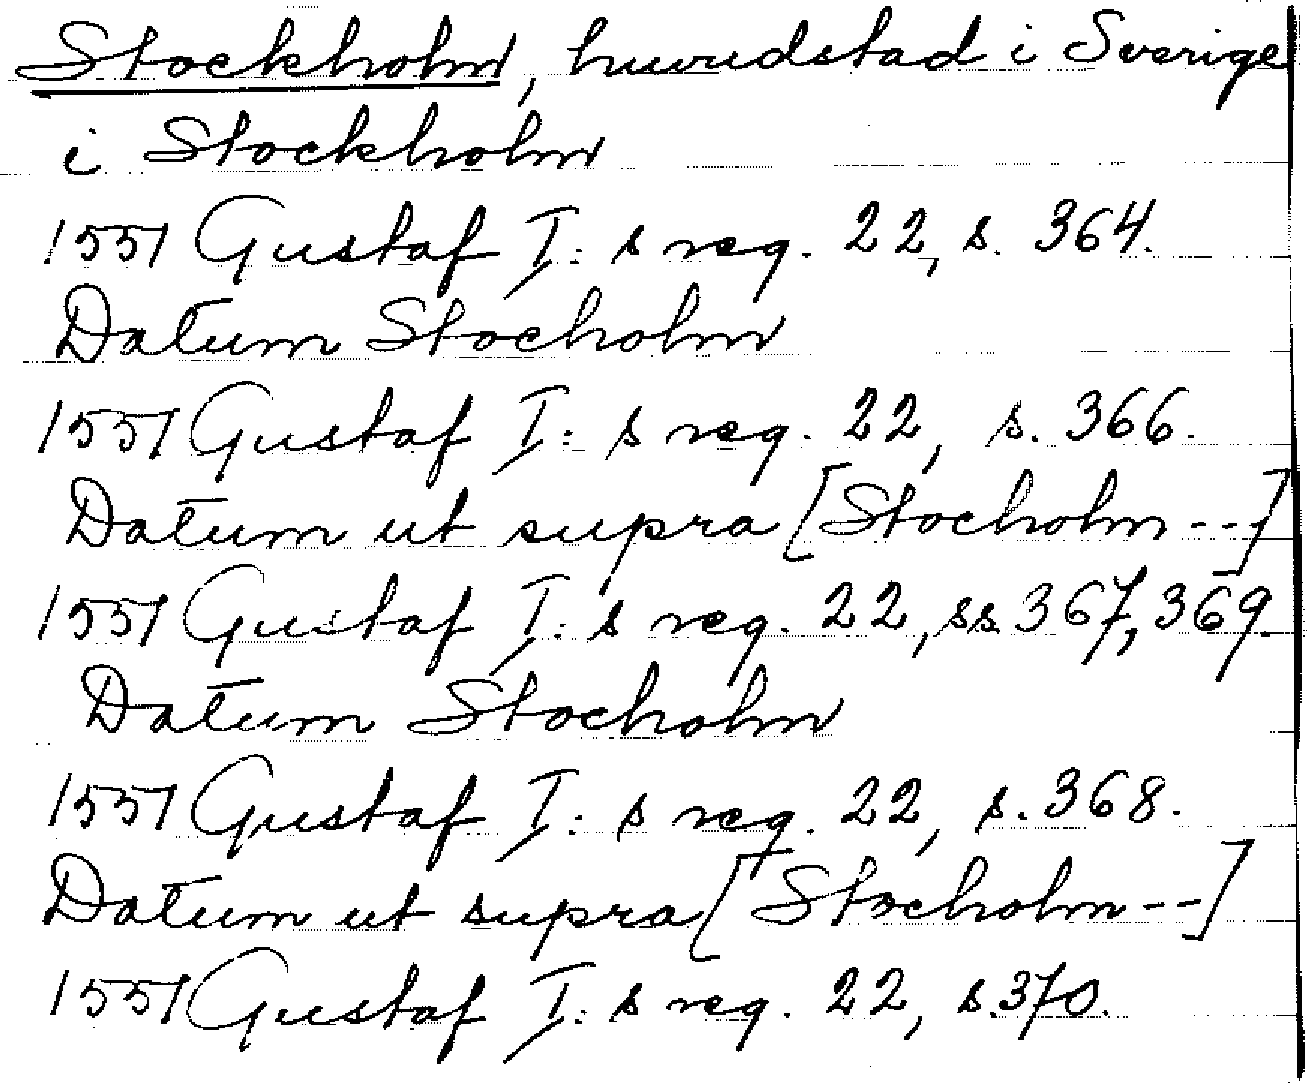 Stockholm, huvudstad i Sverige
i Stockholm
1551 Gustaf I: s reg. 22, s. 364.
Datum Stocholm
1551 Gustaf I: s reg. 22, s. 366.
Datum ut supra [Stocholm ---]
1551 Gustaf I: s reg. 22, ss. 367, 369.
Datum Stocholm
1551 Gustaf I: s reg. 22, s. 368.
Datum ut supra [Stocholm --]
1551 Gustaf I: s reg. 22, s. 370.